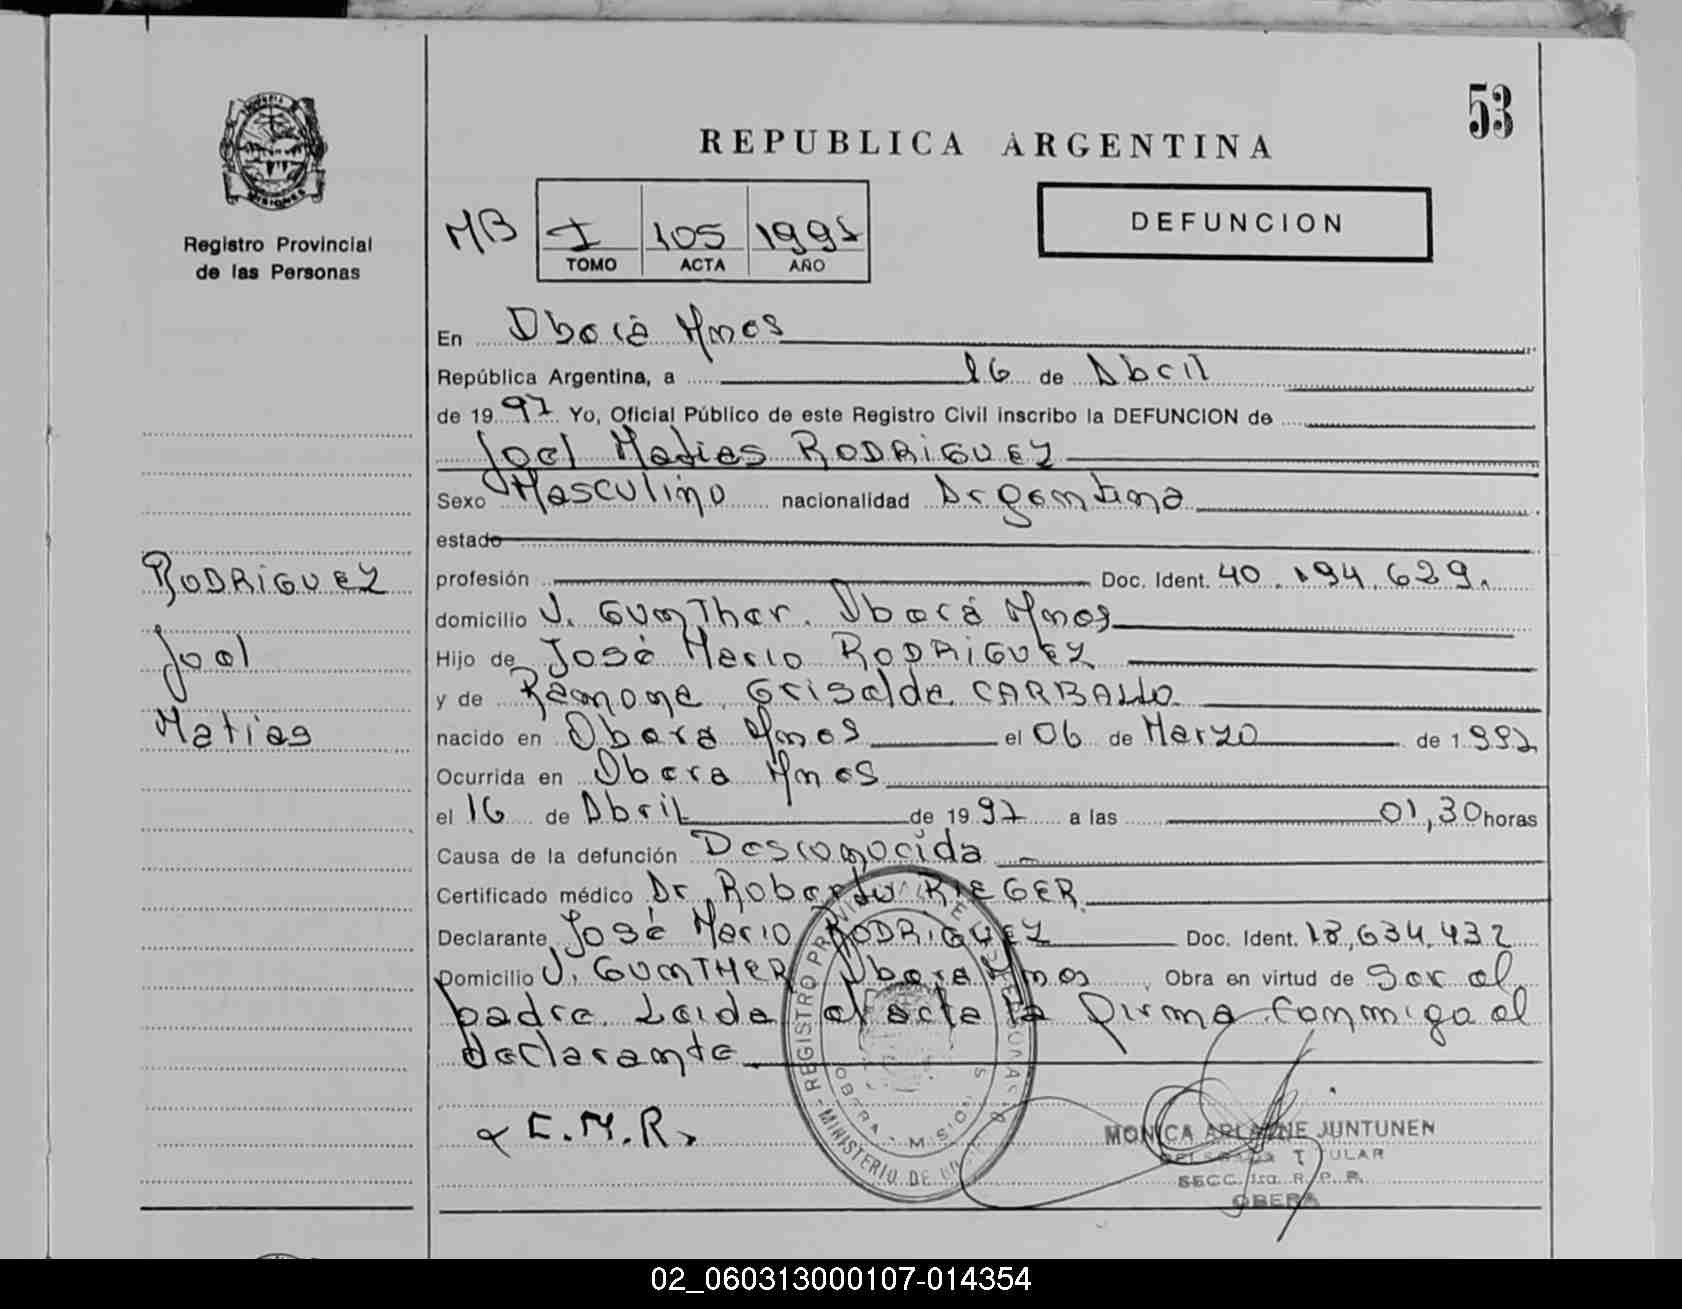 53
REPUBLICA ARGENTINA
MISIONES
Registro Provincial
de las Personas
MB
I 105 1997
TOMO ACTA AÑO
DEFUNCION
En Oberá Mnes
República Argentina, a 16 de Abril
de 1997 Yo, Oficial Público de este Registro Civil inscribo la DEFUNCION de
Joel Matias RODRIGUEZ
Sexo Masculino nacionalidad Argentina
estado
profesión Doc. Ident. 40.194.629.
domicilio J. Gunther. Oberá Mnes
Hijo de José Mario RODRIGUEZ
y de Ramona Griselda CARBALLO
nacido en Obera Mnes el 06 de Marzo de 1.997
Ocurrida en Obera Mnes
el 16 de Abril de 1997 a las 01,30 horas
Causa de la defunción Desconocida
Certificado médico Dr. Roberto RIEGER.
Declarante José Mario RODRIGUEZ Doc. Ident. 18,634,432
Domicilio J. GUNTHER Obera Mnes, Obra en virtud de Ser el
padre. Leida el acta la firma conmigo el
declarante
RODRIGUEZ
Joel
Matias
J.M.R.
REGISTRO PROVINCIAL DE LAS PERSONAS
MINISTERIO DE
OBERA - MISIONES
MONICA ARLAINE JUNTUNEN
DELEGADA TITULAR
SECC. 1ra. R. P. P.
OBERA
02_060313000107-014354